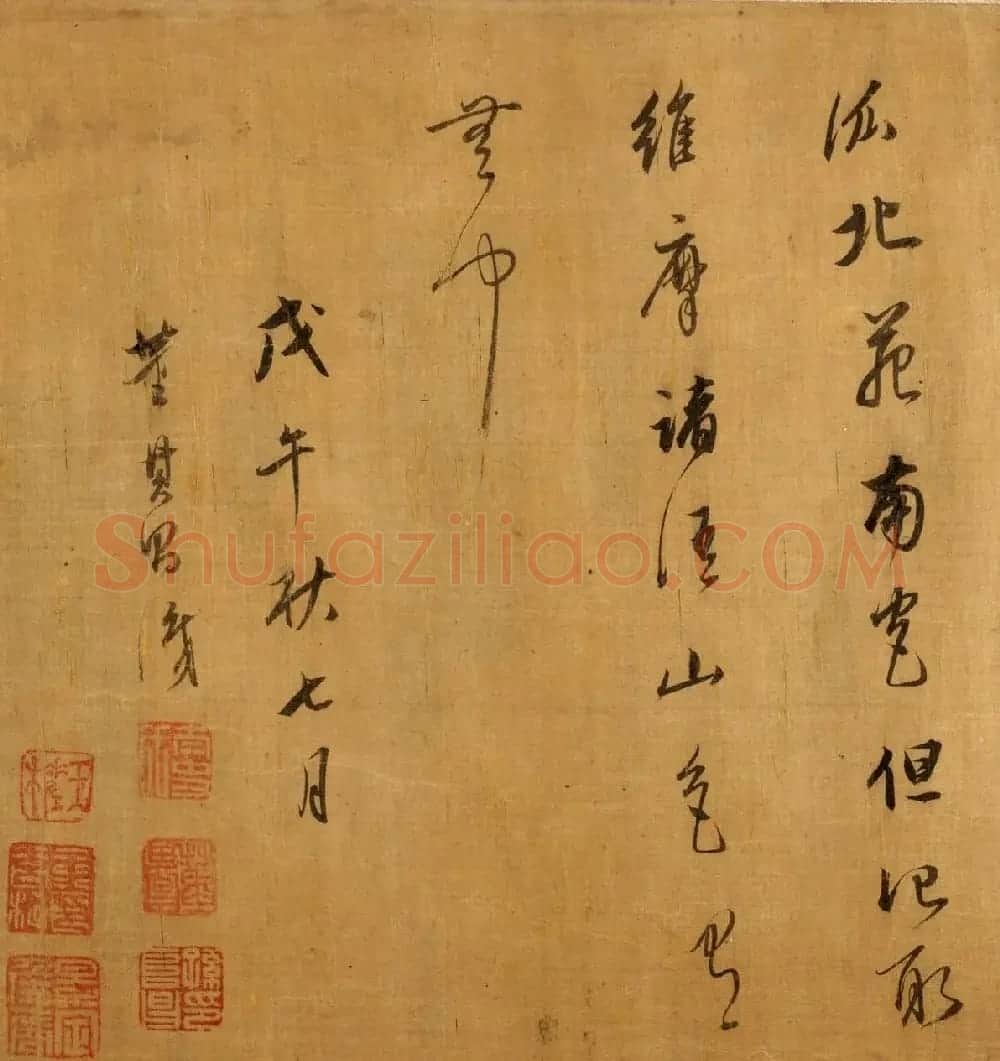 派北苑南宮但記取
維摩詰語山色有
無中
戊午秋七月
董其昌識
Shufaziliao.COM